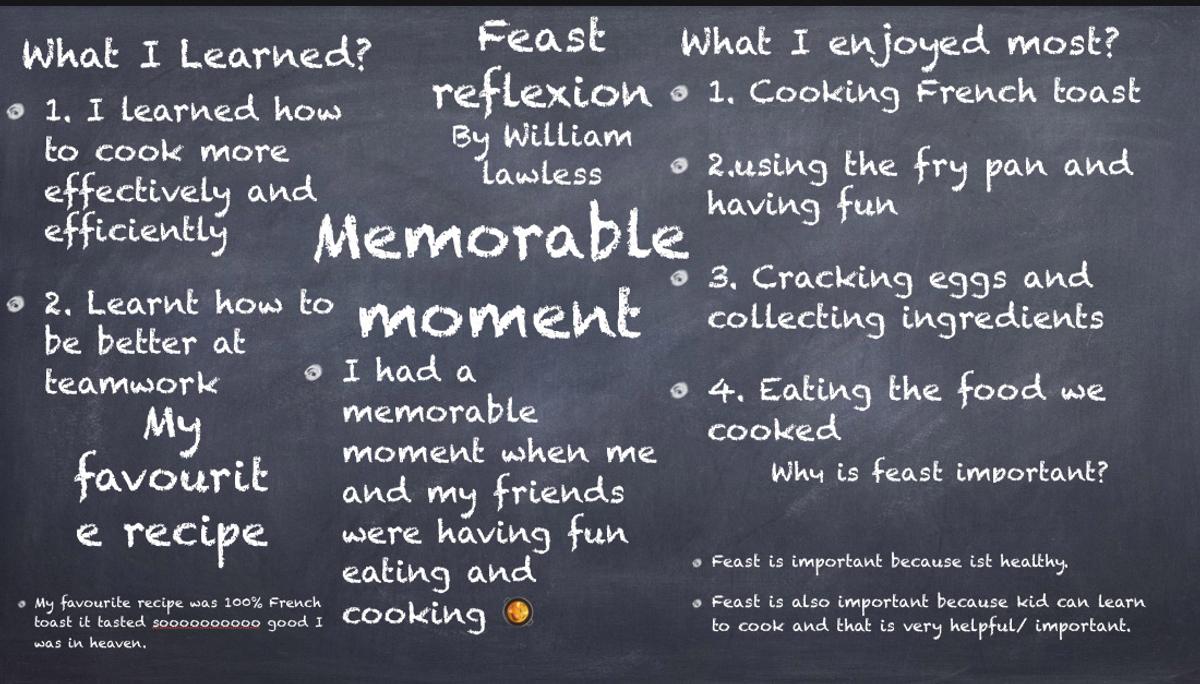 What I Learned?
1. I learned how
to cook more
effectively and
efficiently
2. Learnt how to
be better at
teamwork
My
favourit
e recipe
My favourite recipe was 100% French
toast it tasted soooooooooo good I
was in heaven.
Feast
reflexion
By William
lawless
Memorable
moment
I had a
memorable
moment when me
and my friends
were having fun
eating and
cooking 🥘
What I enjoyed most?
1. Cooking French toast
2.using the fry pan and
having fun
3. Cracking eggs and
collecting ingredients
4. Eating the food we
cooked
Why is feast important?
Feast is important because ist healthy.
Feast is also important because kid can learn
to cook and that is very helpful/ important.